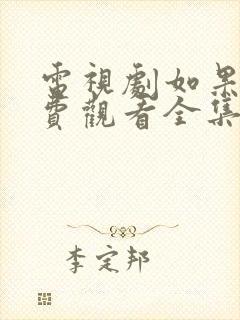 電視劇如果
費觀看全集
李定邦